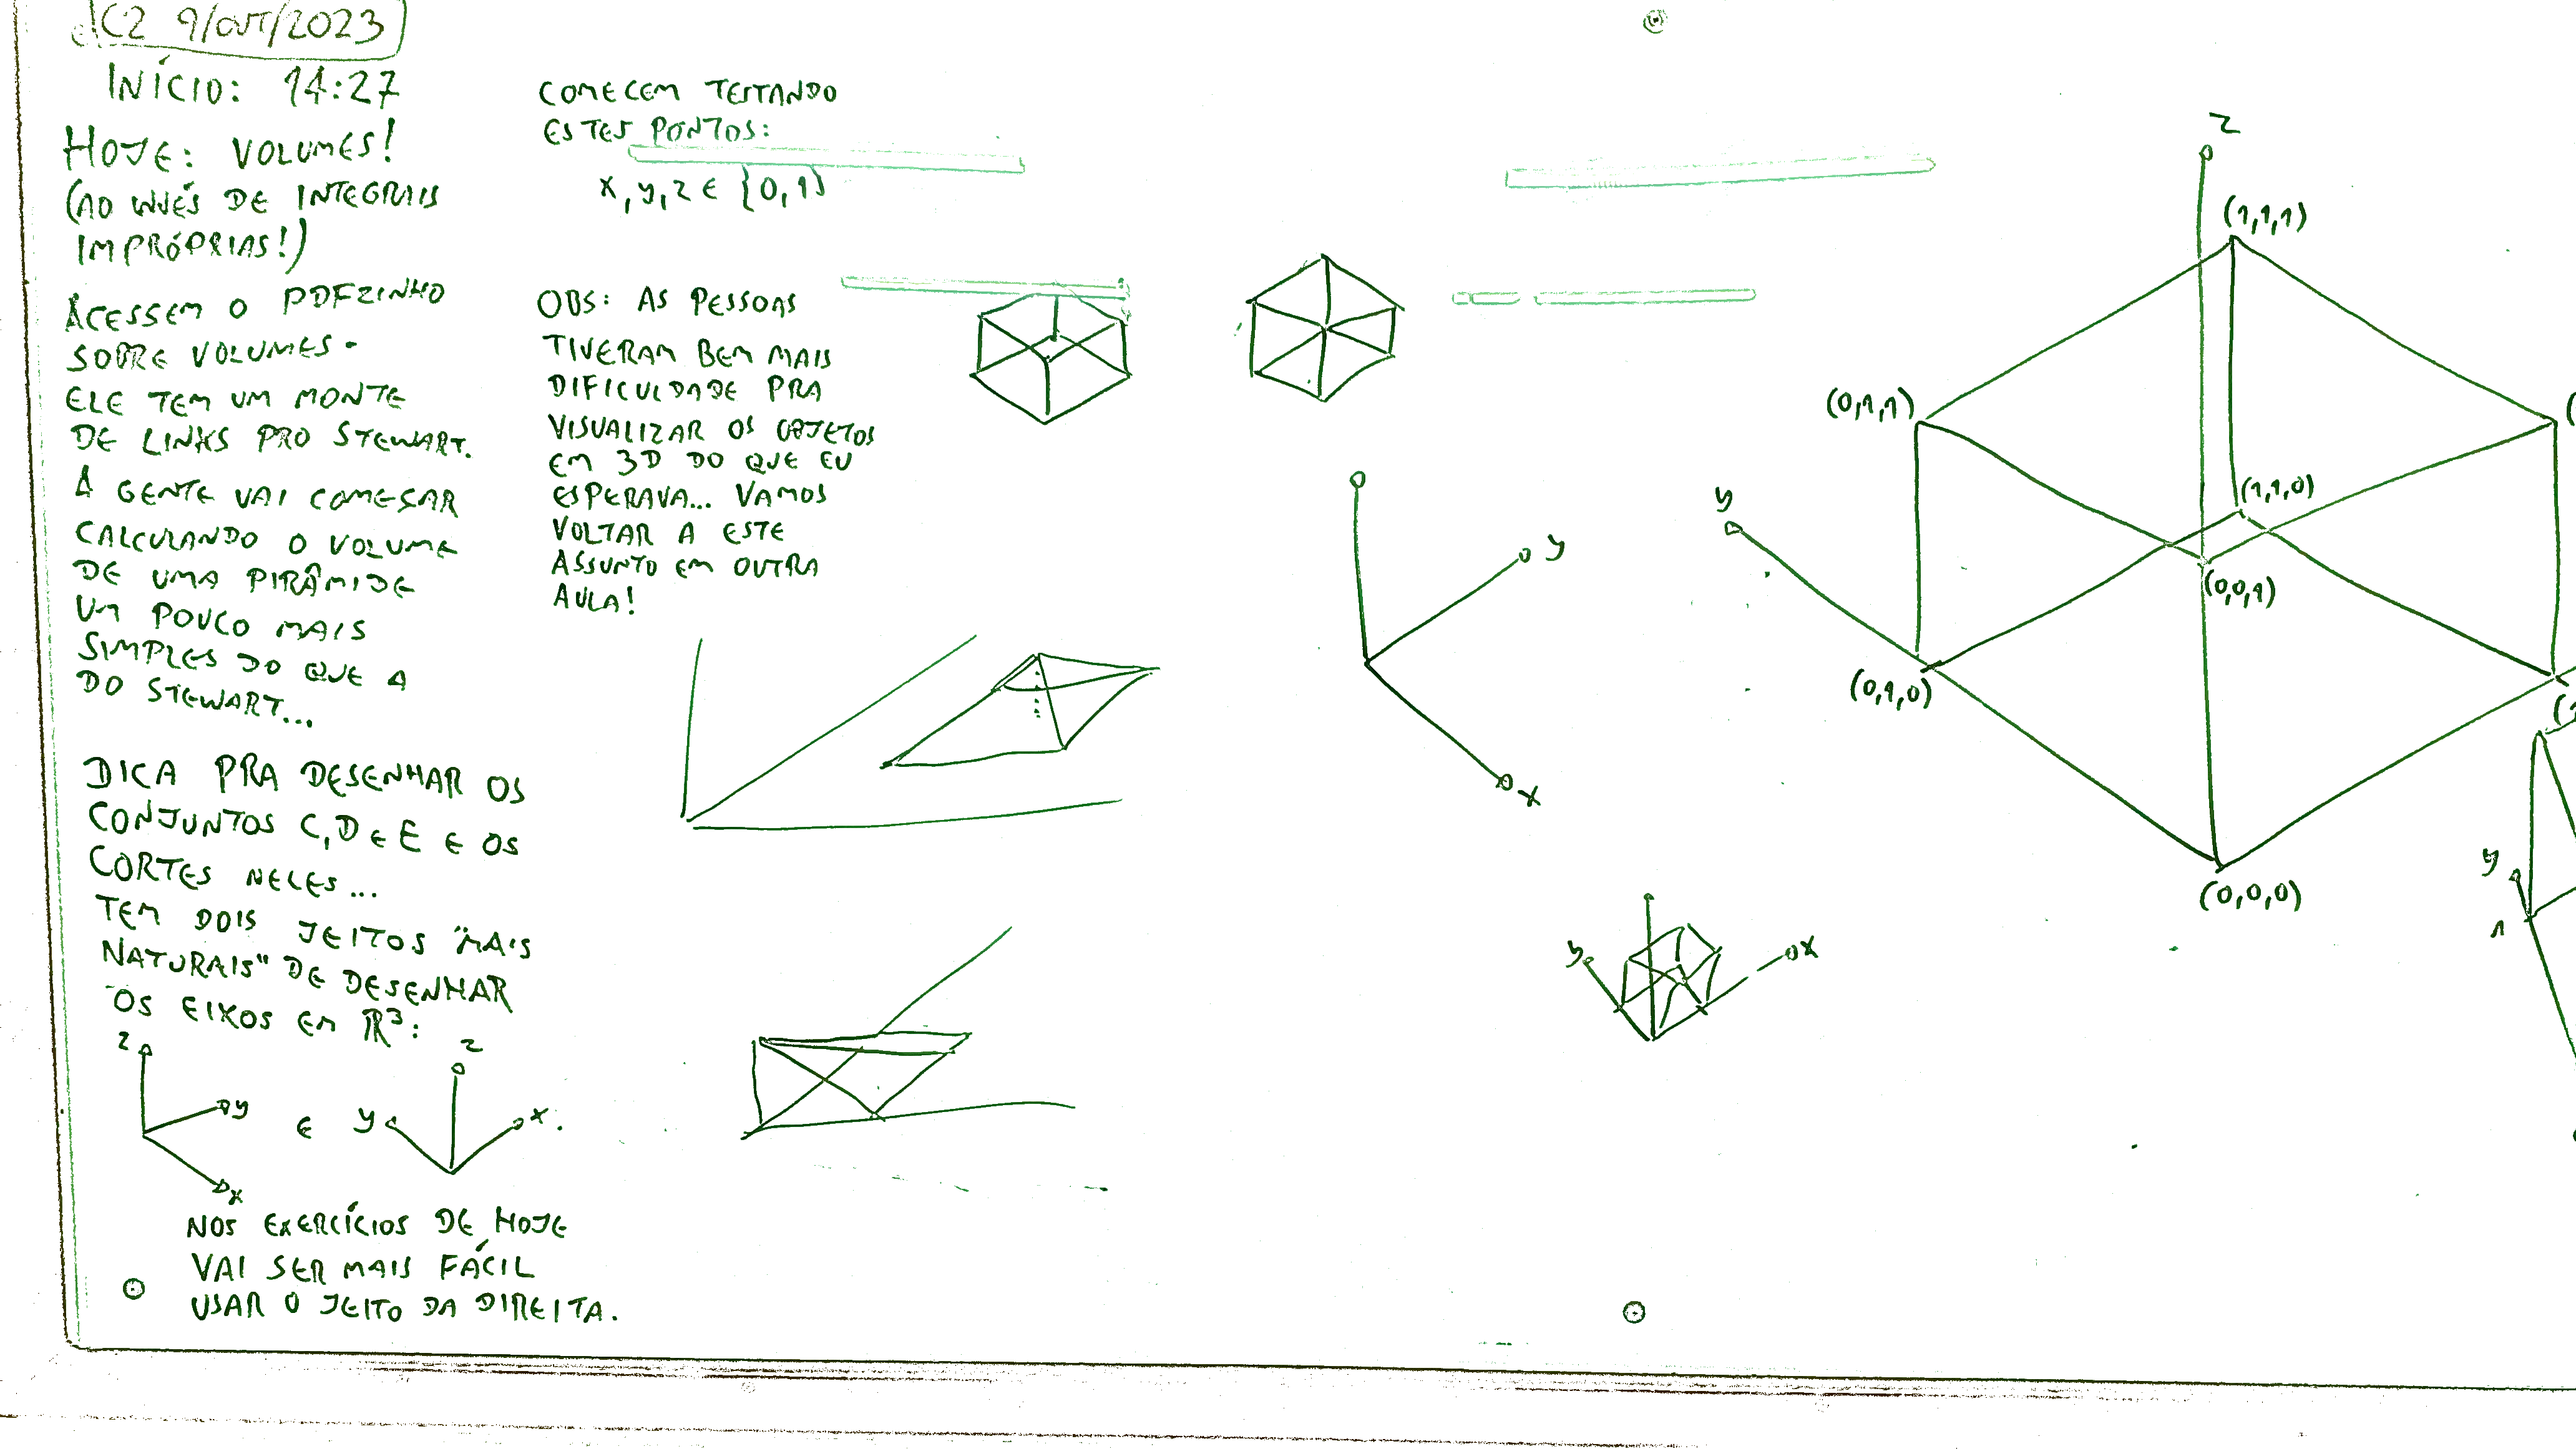 C2 9/OUT/2023
INÍCIO: 14:27
HOJE: VOLUMES!
(AO INVÉS DE INTEGRAIS
IMPRÓPRIAS!)
ACESSEM O PDFZINHO
SOBRE VOLUMES.
ELE TEM UM MONTE
DE LINKS PRO STEWART.
A GENTE VAI COMEÇAR
CALCULANDO O VOLUME
DE UMA PIRÂMIDE
UM POUCO MAIS
SIMPLES DO QUE A
DO STEWART...
DICA PRA DESENHAR OS
CONJUNTOS C, D E E E OS
CORTES NELES...
TEM DOIS JEITOS "MAIS
NATURAIS" DE DESENHAR
OS EIXOS EM ℝ³:
z
y
x
E
y
z
x.
NOS EXERCÍCIOS DE HOJE
VAI SER MAIS FÁCIL
USAR O JEITO DA DIREITA.
COMECEM TESTANDO
ESTES PONTOS:
x, y, z ∈ {0,1}
OBS: AS PESSOAS
TIVERAM BEM MAIS
DIFICULDADE PRA
VISUALIZAR OS OBJETOS
EM 3D DO QUE EU
ESPERAVA... VAMOS
VOLTAR A ESTE
ASSUNTO EM OUTRA
AULA!
y
x
y
x
z
(1,1,1)
(0,1,1)
y
(1,1,0)
(0,0,1)
(0,1,0)
(0,0,0)
y
1